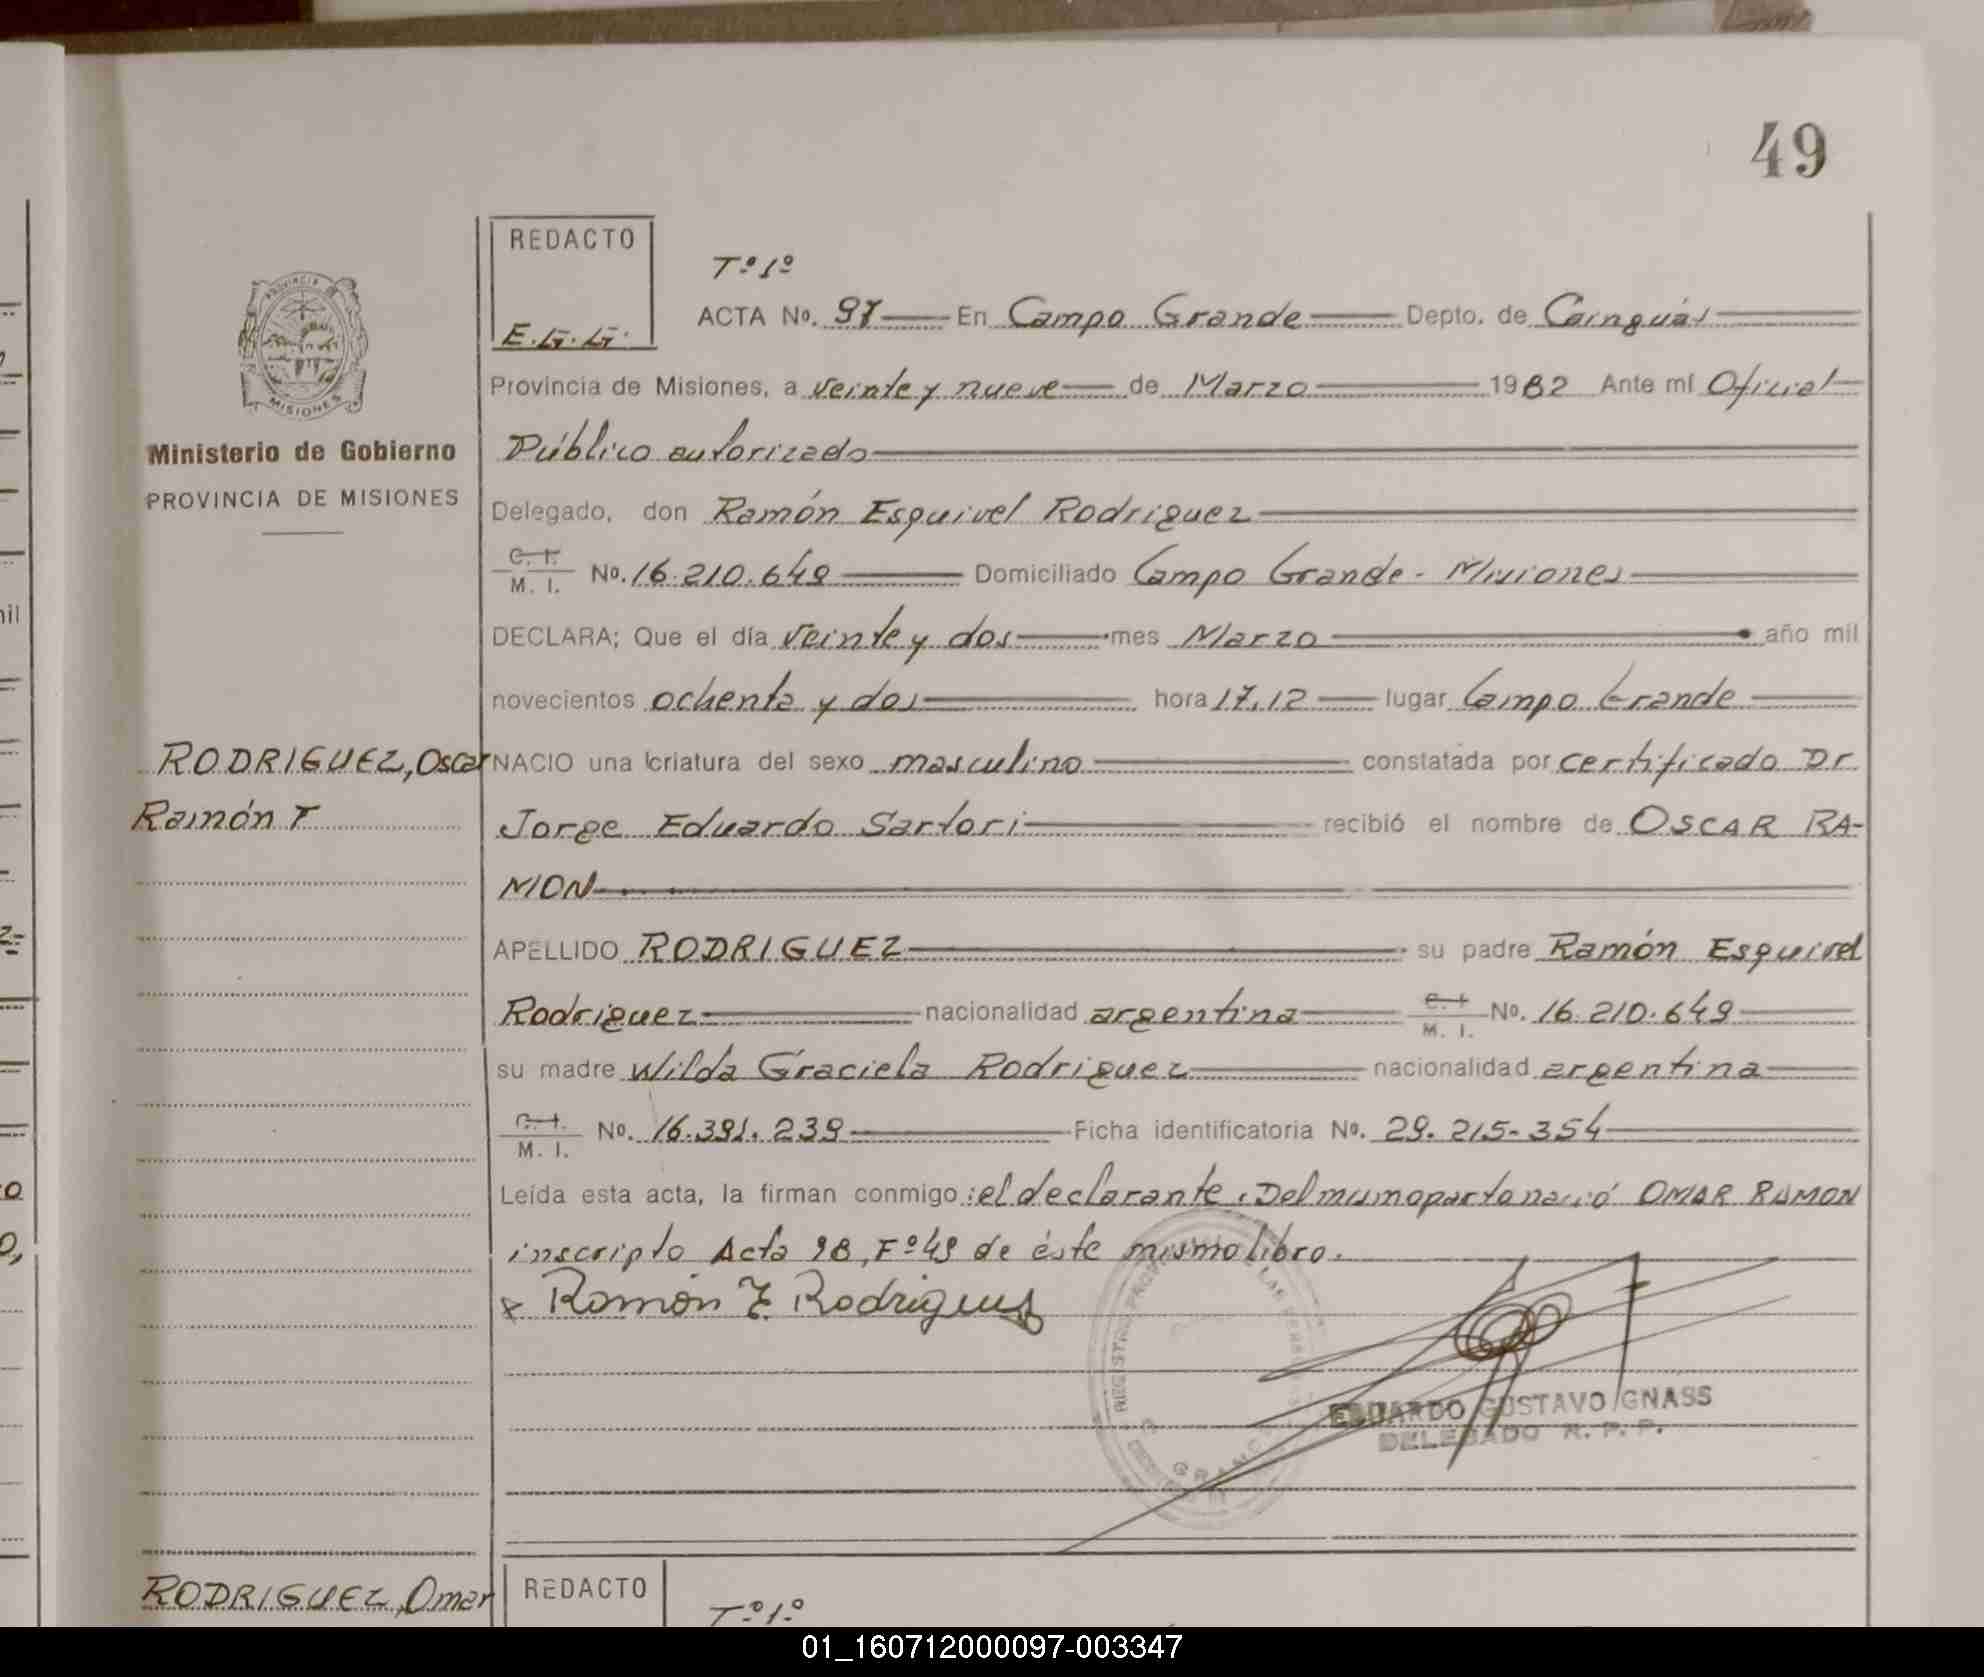 49
REDACTO
E.G.G.
Tº1º
ACTA No. 97 En Campo Grande Depto. de Cainguás
Provincia de Misiones, a veinte y nueve de Marzo 1982 Ante mí Oficial
Público autorizado
PROVINCIA DE MISIONES
Ministerio de Gobierno
PROVINCIA DE MISIONES
Delegado, don Ramón Esquivel Rodriguez
C. I. M. I. No. 16.210.649 Domiciliado Campo Grande - Misiones
DECLARA; Que el día veinte y dos mes Marzo año mil
novecientos ochenta y dos hora 17,12 lugar Campo Grande
RODRIGUEZ, Oscar
Ramón
NACIO una criatura del sexo masculino constatada por certificado Dr
Jorge Eduardo Sartori recibió el nombre de OSCAR RA-
MON
APELLIDO RODRIGUEZ su padre Ramón Esquivel
Rodriguez nacionalidad argentina C. I. M. I. No. 16.210.649
su madre Wilda Graciela Rodriguez nacionalidad argentina
C. I. M. I. No. 16.391.239 Ficha identificatoria No. 29.215-354
Leída esta acta, la firman conmigo: el declarante. Del mismo parto nació OMAR RAMON
inscripto Acta 98, Fº49 de éste mismo libro.
x Ramón E. Rodriguez
EDUARDO GUSTAVO GNASS
DELEGADO R. P. P.
RODRIGUEZ, Omar
REDACTO
Tº1º
01_160712000097-003347